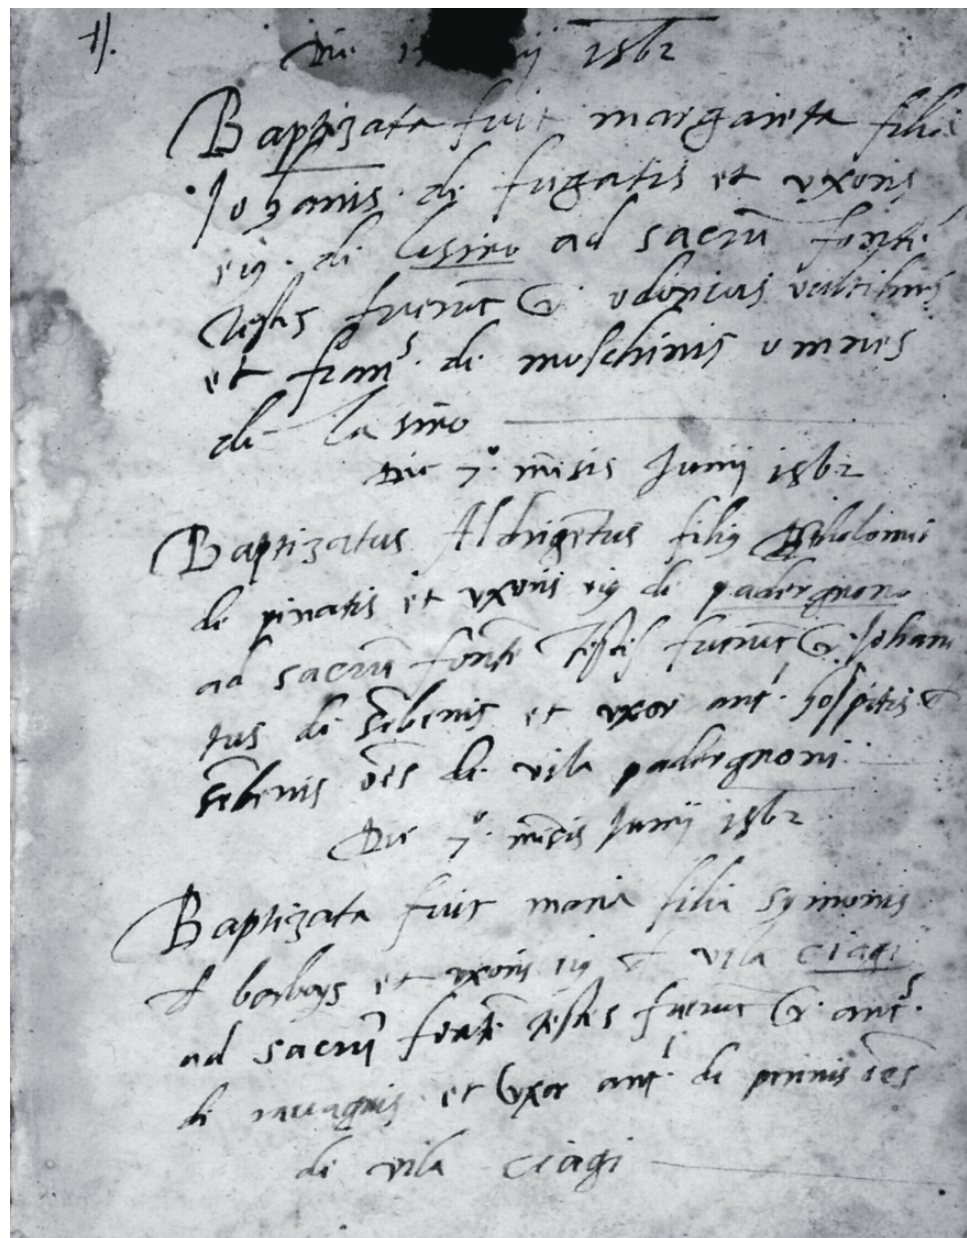 1).
Die 1 ij 1562
Baptizata fuit margareta filia
Johanis di fugatis et uxoris
eiꝰ di Lasino ad sacrū fonte
Testes fuerut
et franˢ. di moschinis omnes
di Lasino
Die 7º mēsis Junij 1562
Baptizatus Aldrigetus filiꝰ Btholomei
di pinatis et uxoris eiꝰ di padergnono
ad sacrū fonte Testes fuerut G. Johan
tus di sēbenis et uxor ant. hospitis d
sēbenis oēs di vila padergnoni
Die 7º mēsis Junij 1562
Baptizata fuit maria filia symonis
d borboys et uxoris eiꝰ d vila ciagi
ad sacrū fonte testes fuerut G. antˢ.
di et Uxor ant. di pninis oēs
di vila ciagi